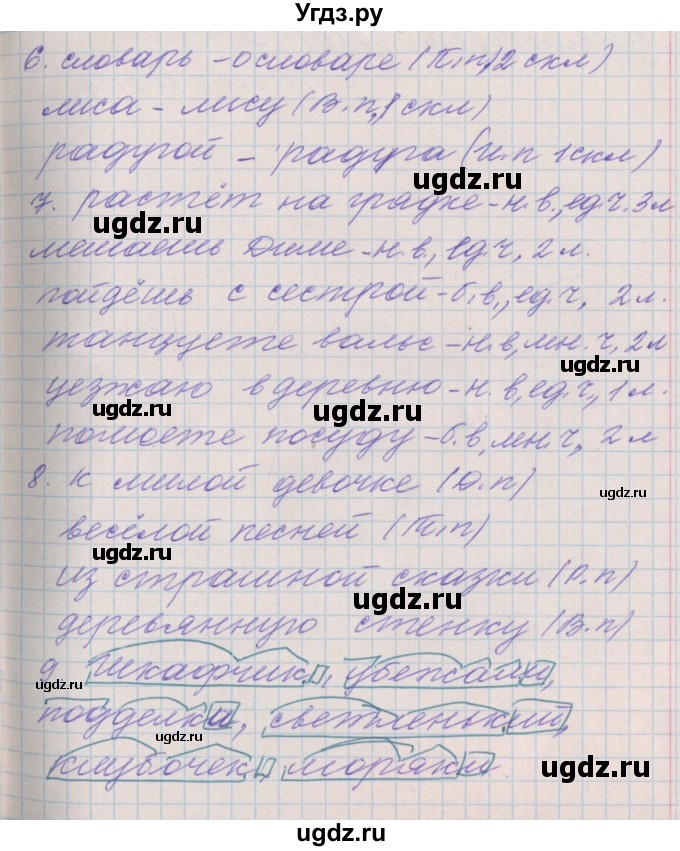 Угдз.ру
6. словарь – о словаре (П.п, 2 скл)
лиса – лису (В.п, 1 скл)
радугой – радуга (И.п 1 скл)
ugdz.ru
7. растёт на грядке – н.в., ед.ч. 3 л
ugdz.ru
мешаешь Диме – н.в., ед.ч, 2 л.
пойдёшь с сестрой – б.в., ед.ч, 2 л.
танцуете вальс – н.в, мн.ч, 2 л
ugdz.ru
уезжаю в деревню – н.в, ед.ч., 1 л.
ugdz.ru ugdz.ru
помоете посуду – б.в, мн.ч, 2 л
8. к милой девочке (Д.п)
ugdz.ru
весёлой песней (Т.п)
ugdz.ru
из страшной сказки (Р.п)
ugdz.ru
деревянную стенку (В.п)
9. шкафчик, убежала,
подделка, светленький,
ugdz.ru
клубочек, моряки.
ugdz.ru
ugdz.ru